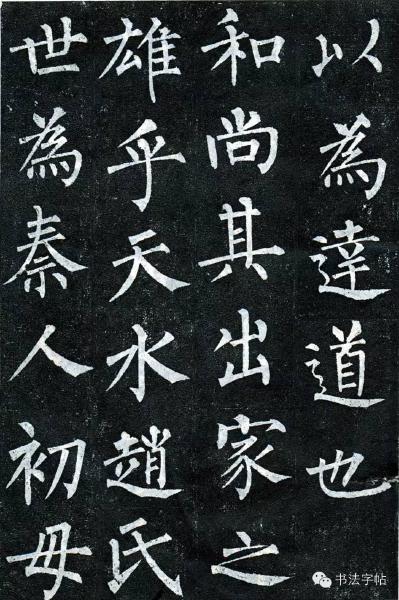 以為達道也
和尚其出家之
雄乎天水趙氏
世為秦人初母
书法字帖